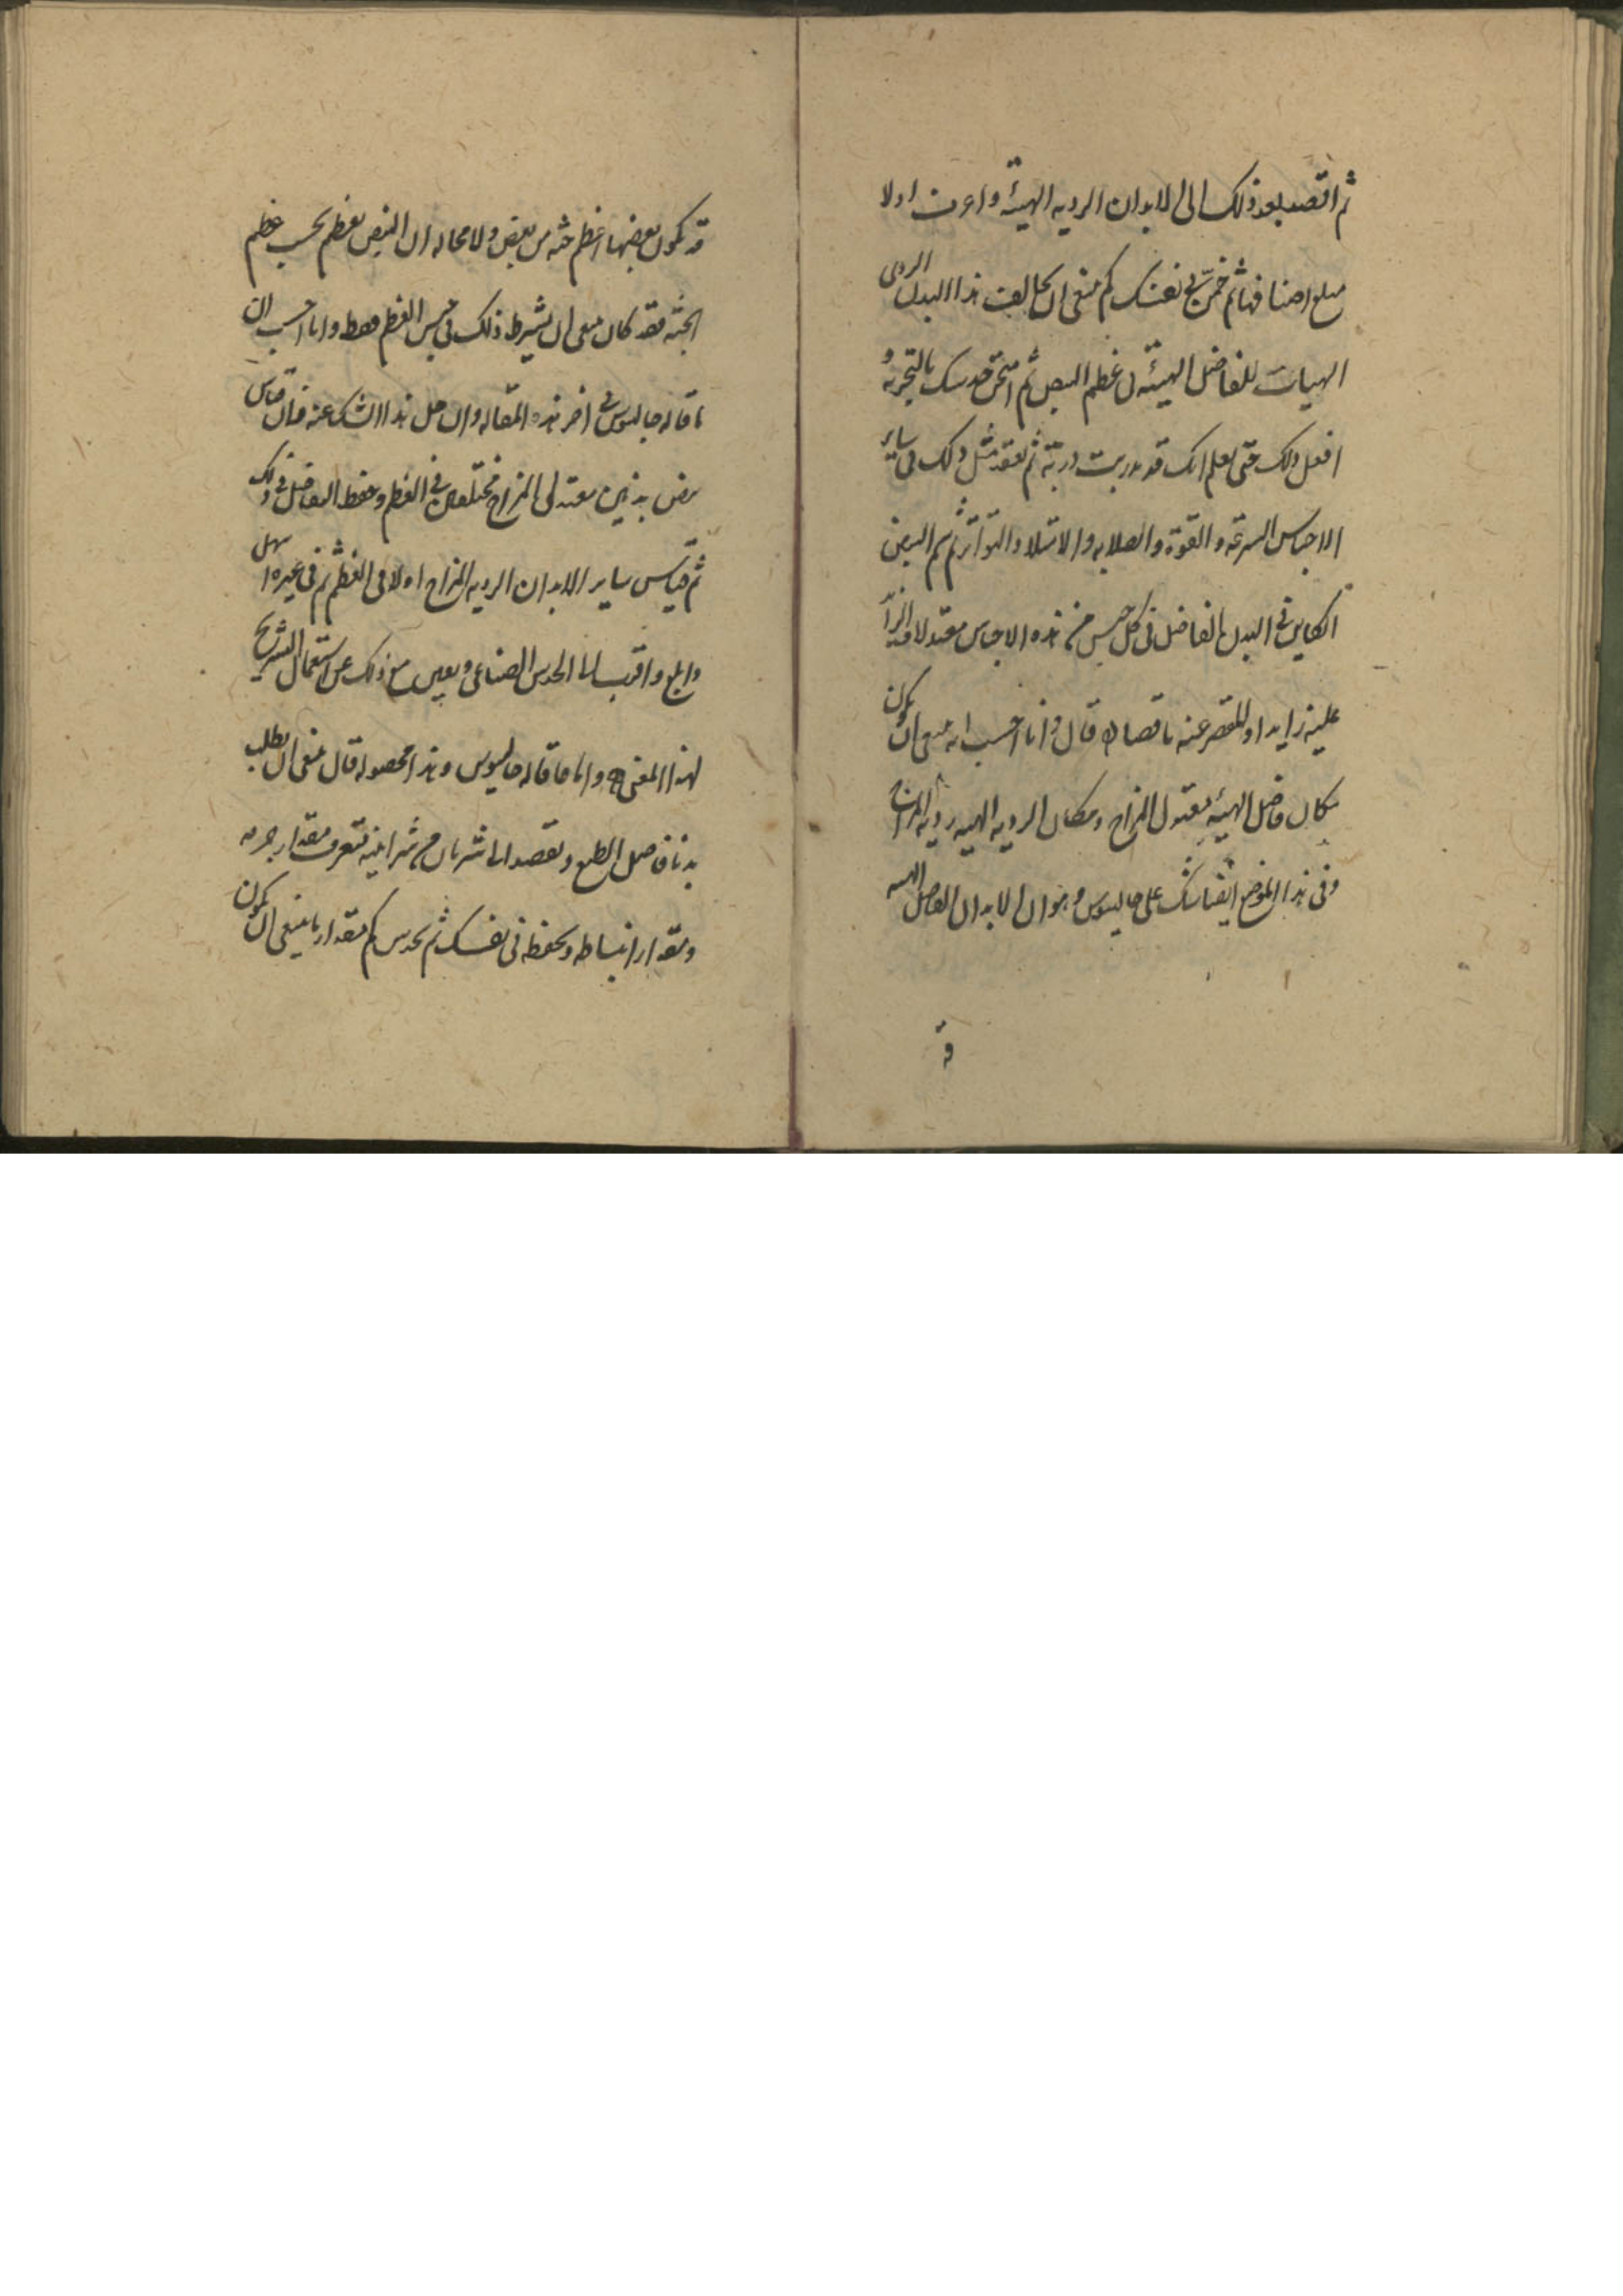 ثم اقصد بعد ذلك الى الابدان الرديه الهيئة واعرف اولا
مبلغ اصنافها ثم خمن في نفسك كم ينبغى ان يخالف هذا البدن الردى
الهيات للفاضل الهيئة في عظم النبض ثم امتحن حدسك بالتجربة و
افعل ذلك حتى تعلم انك قد تدربت دربة ثم تفقد مثل ذلك في ساير
الاجناس السرعة والقوة والصلابه والامتلا والتواتر ثم سم النبض
الكاين في البدن الفاضل في كل جنس من هذه الاجناس معتدلا والزا
عليه زايدا وللمقصر عنه ناقصا قال وانا احسب انه ينبغى ان يكون
مكان فاضل الهيئة معتدل المزاج ومكان الرديه الهييه رديه المزاج
وفى هذا الموضع ايضا شك على جالينوس وهو ان الابدان الفاضل الهييه
قد
قد يكون بعضها اعظم جثه من بعض ولا محاله ان النبض يعظم بحسب عظم
الجثه فقد كان ينبغى ان يشترط ذلك في جنس العظم فقط وانا احسب ان
ما قاله جالينوس في اخر هذه المقاله وان حل هذا الشك عنه فان قياس
نبض بدنين معتدلى المزاج مختلفين في العظم وحفظ التفاضل في ذلك
ثم قياس ساير الابدان الرديه المزاج اولا في العظم ثم في غيره اسهل
وابلغ واقرب الى الحدس الصناعى ويعين مع ذلك عن استعمال التشريح
لهذا المعنى واما ما قاله جالينوس وهذا محصوله قال ينبغى ان يطلب
بدنا فاضل الطبع وتقصد الى شريان من شراينه فتعرف مقدار جرمه
ومقدار انبساطه وتحفظه في نفسك ثم تحدس كم مقدار ما ينبغى ان يكون